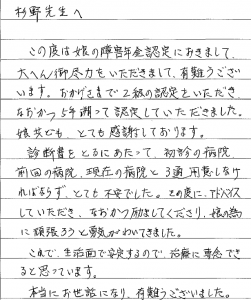 杉野先生へ
この度は娘の障害年金認定におきまして、
大へん御尽力をいただきまして、有難うござい
ます。おかげさまで2級の認定をいただき、
なおかつ5年遡って認定していただきました。
娘共ども、とても感謝しております。
診断書をとるにあたって、初診の病院、
前回の病院、現在の病院と3通、用意しなけ
ればならず、とても不安でした。その度に、アドバイス
していただき、なおかつ励ましてくださり、娘の為
に頑張ろうと勇気がわいてきました。
これで、生活面で安定するので、治療に専念でき
ると思っています。
本当にお世話になり、有難うございました。